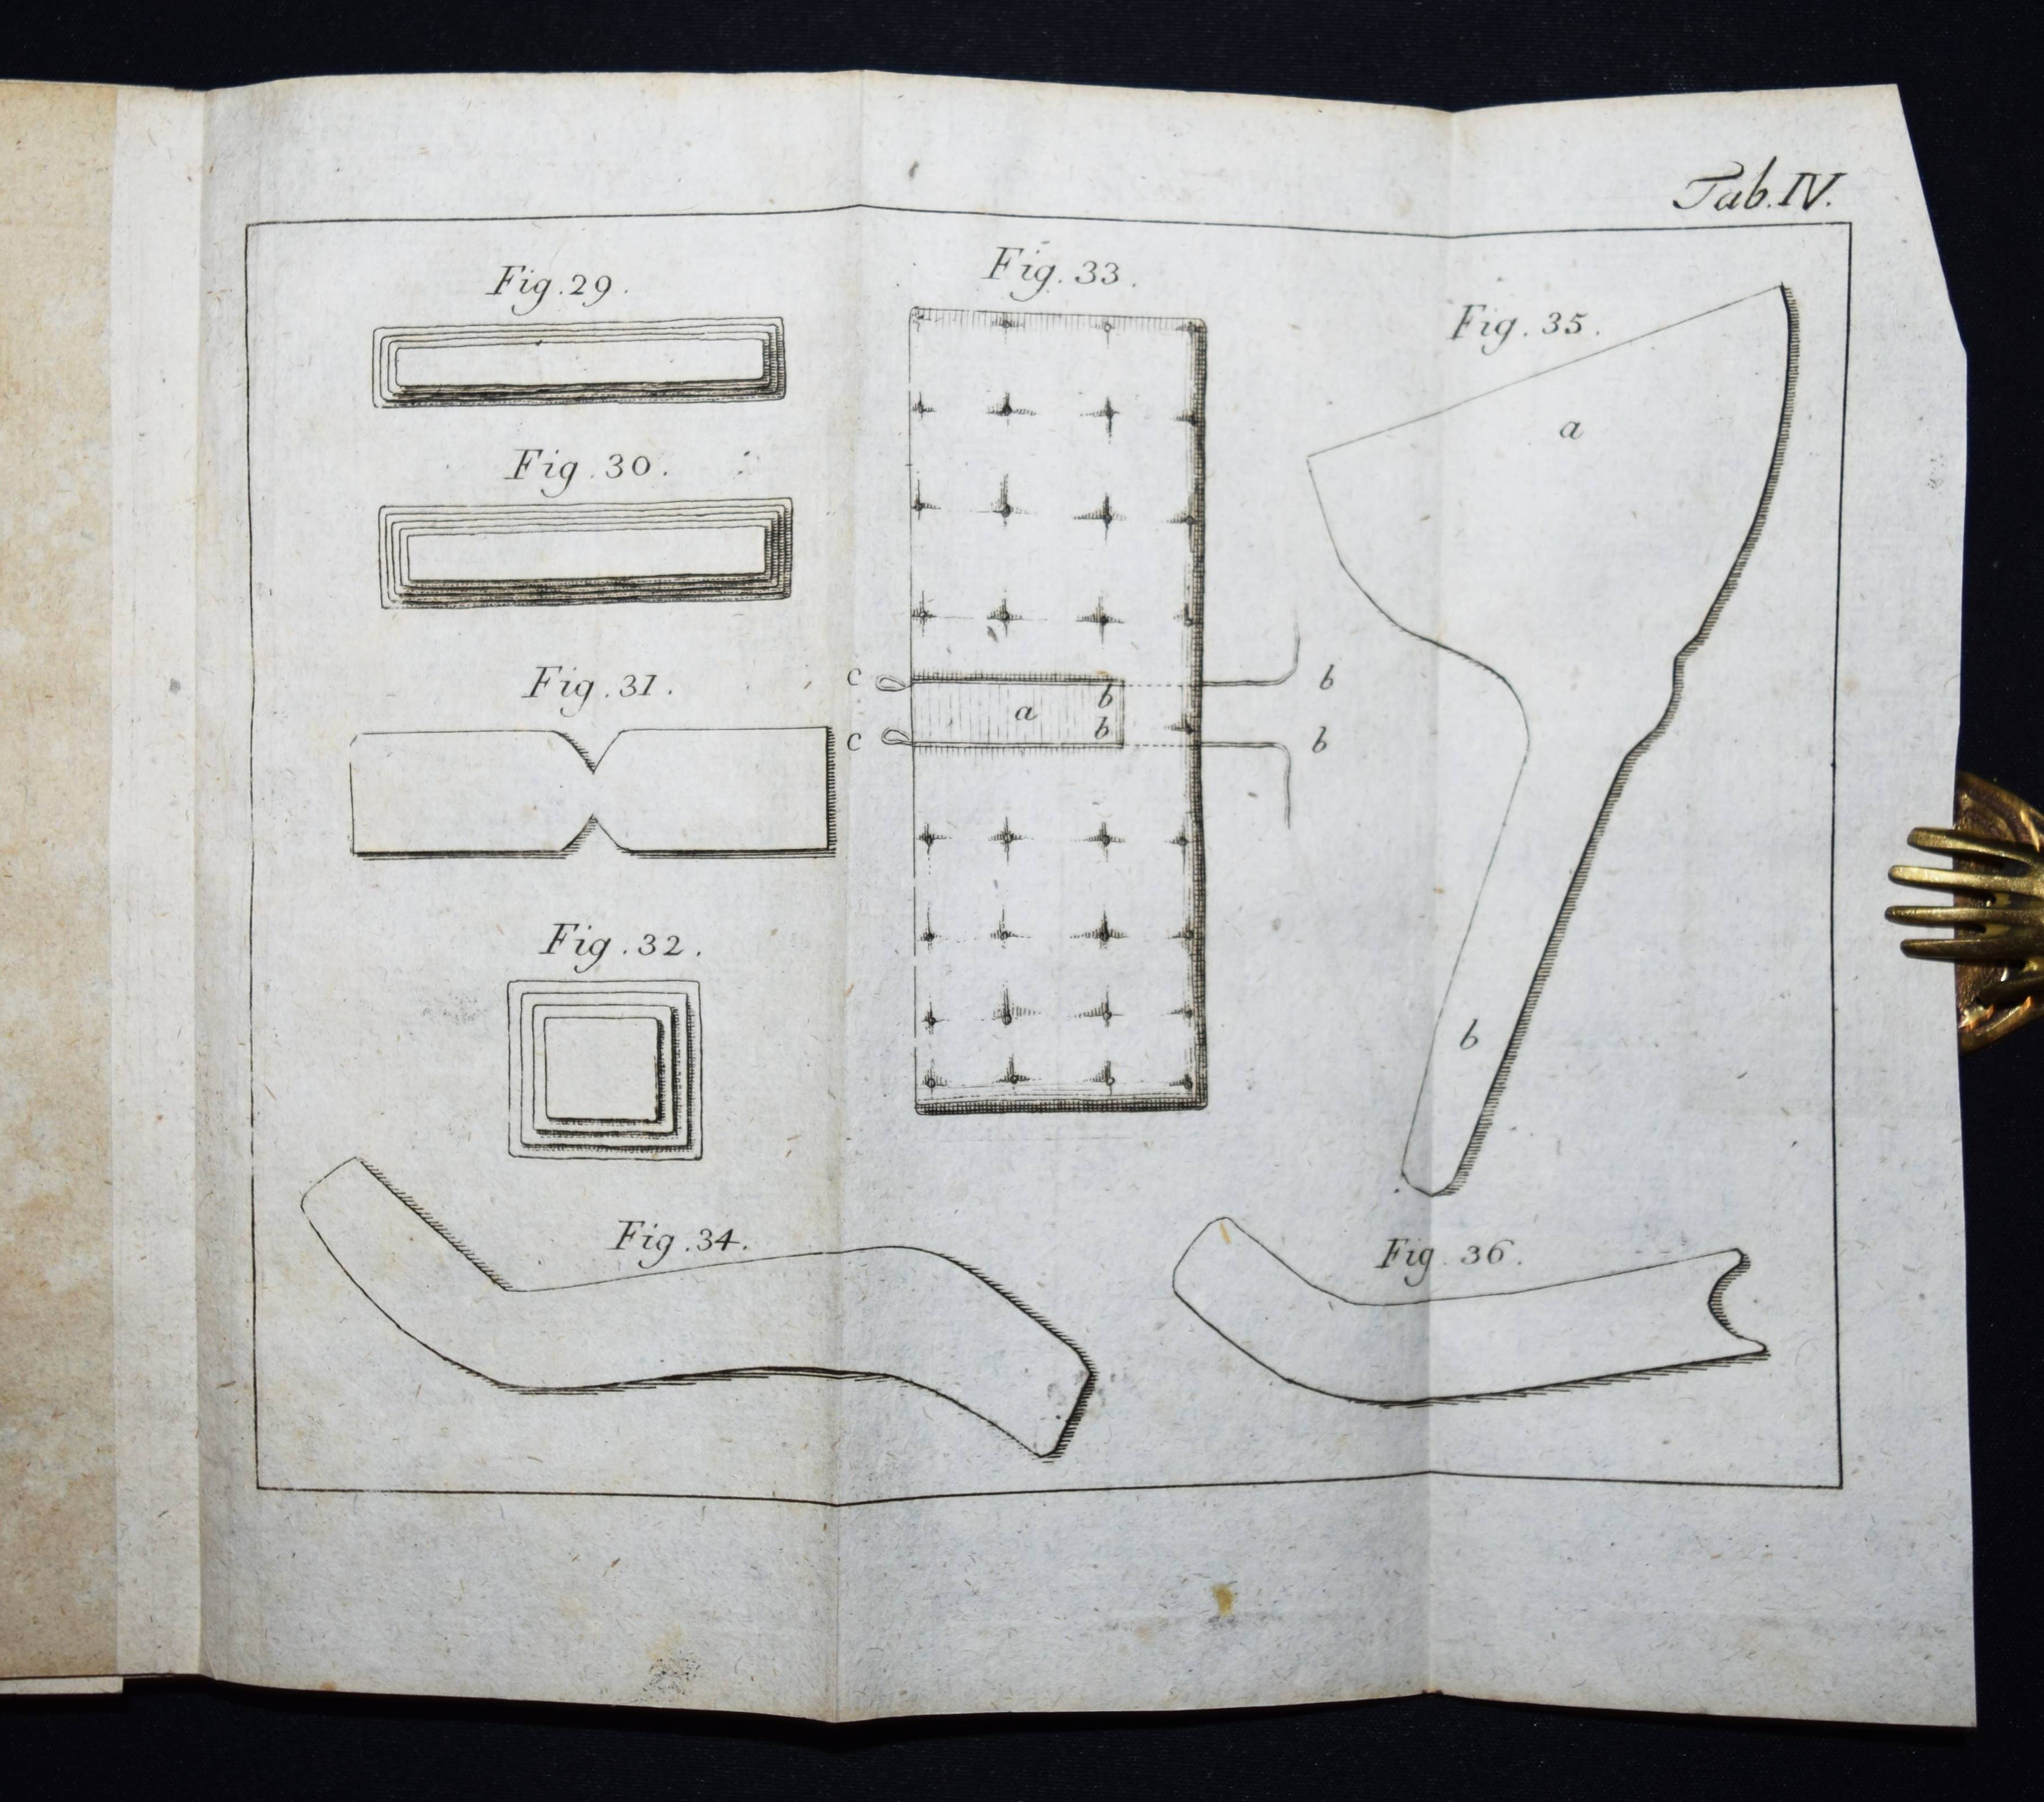 Tab.IV.
Fig.29.
Fig.30.
Fig.31.
Fig.32.
Fig.33.
c
b
b
a
b
c
b
Fig.34.
Fig.35.
a
b
Fig.36.